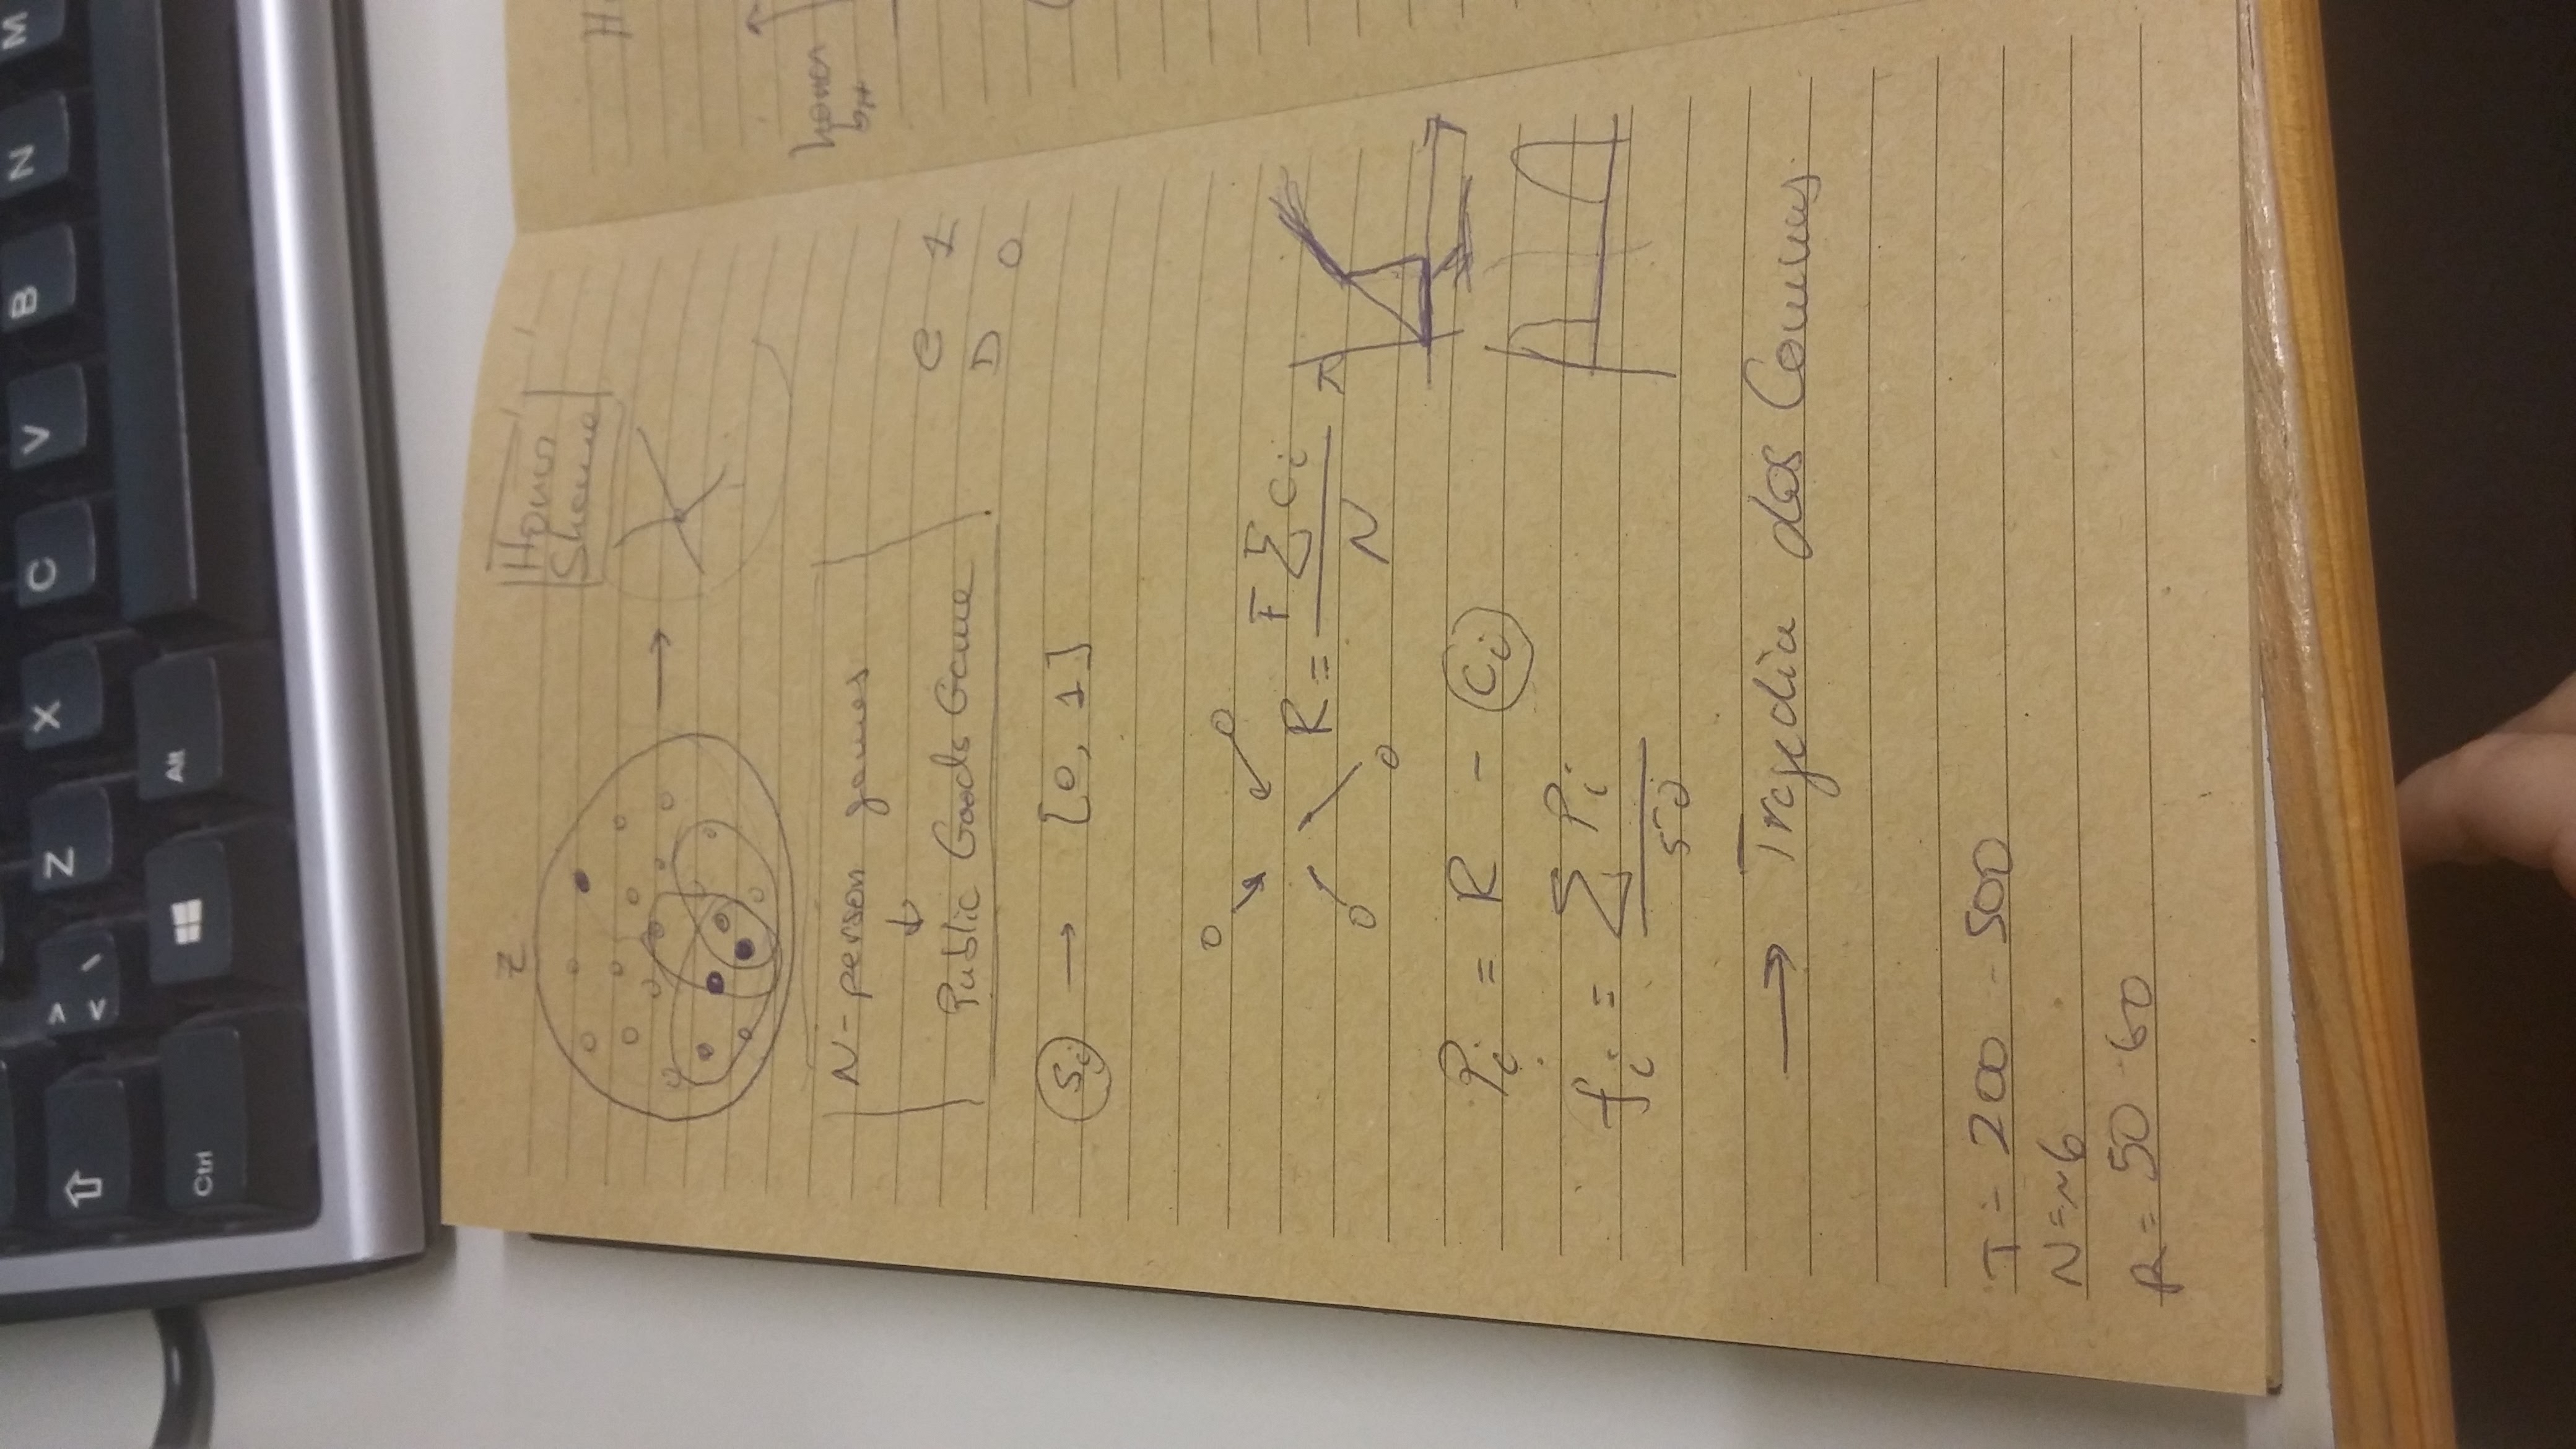 > Z X C V B N M
< \
Ctrl Alt
Z
Honor
Shame
H
N-person games
↓
Public Goods Game
honor
C 1
D 0
Si → [0, 1]
R = F Σ ci / N
π
Pi = R - ci
fi = Σ Pi / 50
→ Tragedia dos Comuns
T = 200 - 500
N = ~6
R = 50 - 60